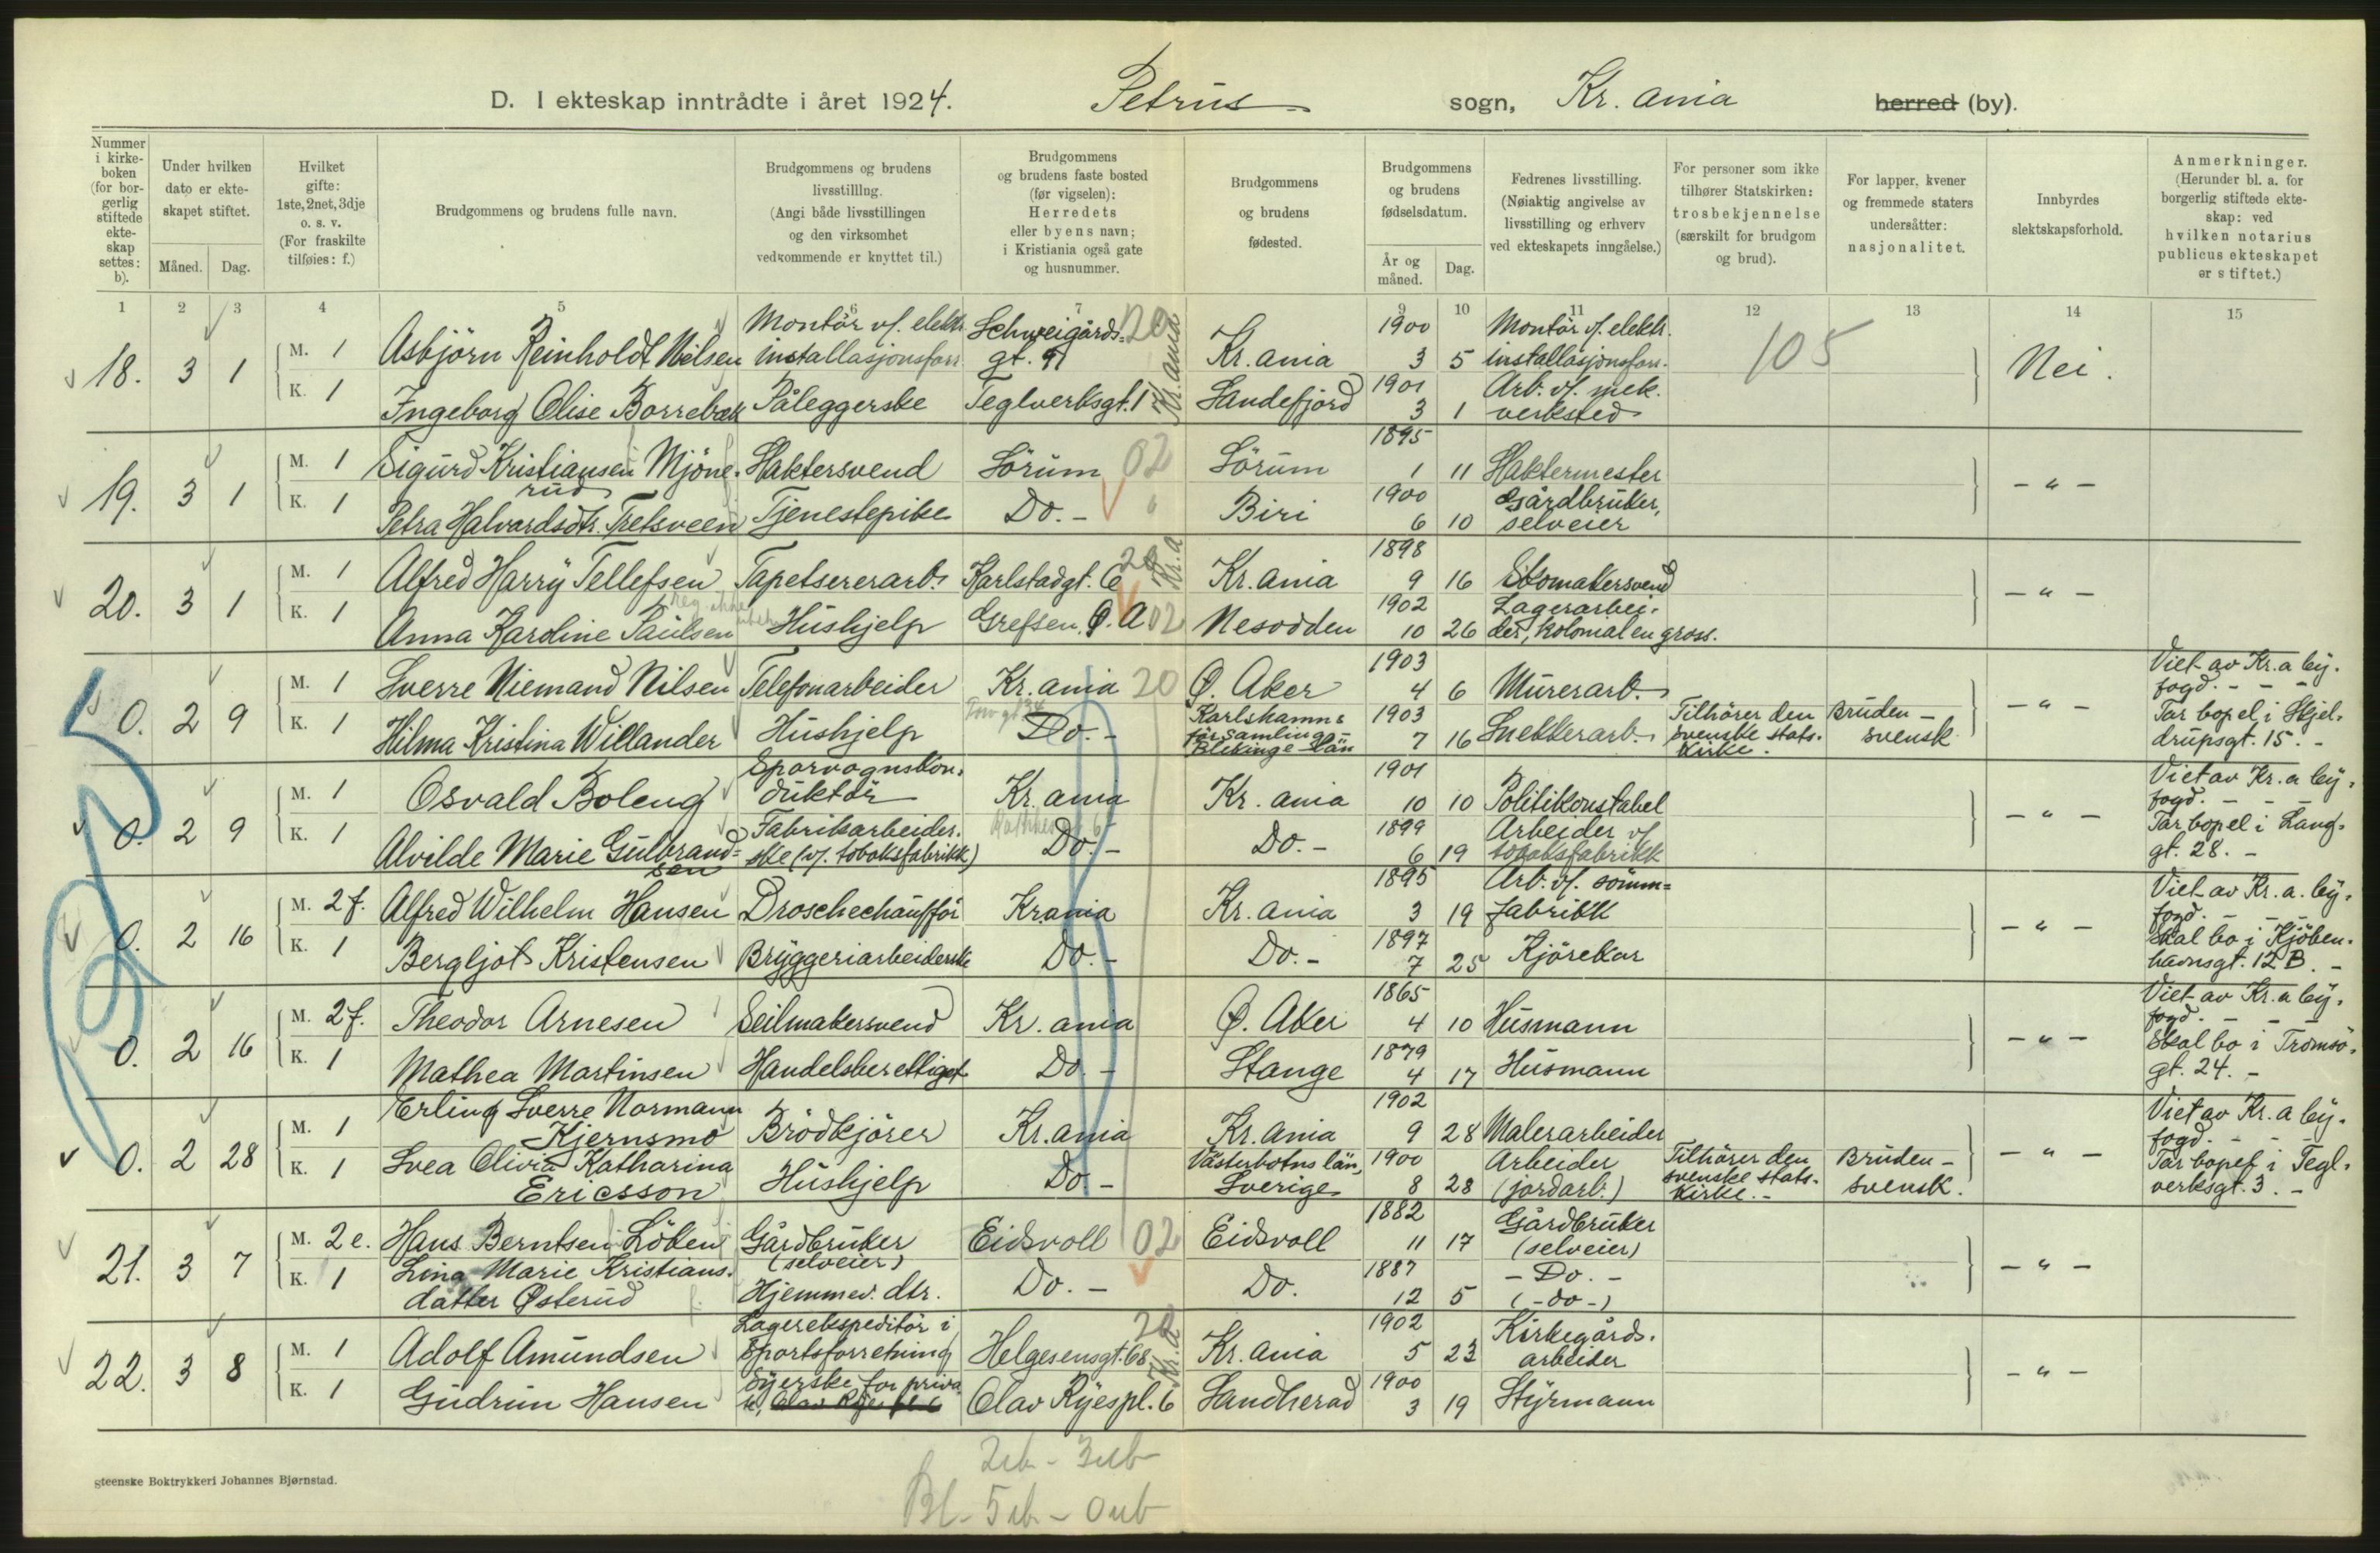 D. I ekteskap inntrådte i året 1924. Petrus sogn, Kr. ania herred (by).
Nummer i kirke-boken (for bor-gerlig stiftede ekte-skap settes: b).
Under hvilken dato er ekte-skapet stiftet.
Måned. Dag.
Hvilket gifte: 1ste, 2net, 3dje o. s. v. (For fraskilte tilføies: f.)
Brudgommens og brudens fulle navn.
Brudgommens og brudens livsstilling. (Angi både livsstillingen og den virksomhet vedkommende er knyttet til.)
Brudgommens og brudens faste bosted (før vigselen): Herredets eller byens navn; i Kristiania også gate og husnummer.
Brudgommens og brudens fødested.
Brudgommens og brudens fødselsdatum.
År og måned. Dag.
Fedrenes livsstilling. (Nøiaktig angivelse av livsstilling og erhverv ved ekteskapets inngåelse.)
For personer som ikke tilhører Statskirken: trosbekjennelse (særskilt for brudgom og brud).
For lapper, kvener og fremmede staters undersåtter: nasjonalitet.
Innbyrdes slektskapsforhold.
Anmerkninger. (Herunder bl. a. for borgerlig stiftede ekte-skap: ved hvilken notarius publicus ekteskapet er stiftet.)
1 2 3 4 5 6 7 9 10 11 12 13 14 15
18. 3 1 M. 1 Asbjörn Reinholdt Nilsen Montör v/. elektr. installasjonsforr. Schweigårds-gt. 91 20 Kr. ania Kr. ania 1900 3 5 Montör v/. elektr. installasjonsforr. 105 Nei.
K. 1 Ingeborg Olise Borrebæk Påleggerske Teglverksgt. 1 Sandefjord 1901 3 1 Arb. v/. mek. verksted
19. 3 1 M. 1 Sigurd Kristiansen Mjöne-rud Slaktersvend Sörum 02 Sörum 1895 1 11 Slaktermester - " -
K. 1 Petra Halvardsdtr. Tretsveen Tjenestepike Do. - Biri 1900 6 10 Gårdbruker, selveier
20. 3 1 M. 1 Alfred Harry Tellefsen Tapetsererarb. Karlstadgt. 6 20 Kr. a Kr. ania 1898 9 16 Skomakersvend - " -
K. 1 Anna Karoline Paulsen Hushjelp Grefsen, Ø. A 02 Nesodden 1902 10 26 Lagerarbei-der, kolonial en gross.
0. 2 9 M. 1 Sverre Niemand Nilsen Telefonarbeider Kr. ania 20 Ø. Aker 1903 4 6 Murerarb. - " - Viet av Kr. a by-fogd. - - -
K. 1 Hilma Kristina Willander Hushjelp Do. - Karlshamns församling - Blekinge Län 1903 7 16 Snekkerarb. Tilhörer den svenske stats-kirke. Bruden - svensk Tar bopel i Skjel-drupsgt. 15. -
0. 2 9 M. 1 Osvald Boleng Sporvognskon-duktör Kr. ania Kr. ania 1901 10 10 Politikonstabel - " - Viet av Kr. a by-fogd. - - -
K. 1 Alvilde Marie Gulbrand-sen Fabrikarbeider-ske (v/. tobaksfabrikk) Do. - Do. - 1899 6 19 Arbeider v/ tobaksfabrikk Tar bopel i Lang-gt. 28. -
0. 2 16 M. 2 f. Alfred Wilhelm Hansen Droschechaufför Kr. ania Kr. ania 1895 3 19 Arb. v/. sömm-fabrikk - " - Viet av Kr. a. by-fogd. - - -
K. 1 Bergljot Kristensen Bryggeriarbeiderske Do. - Do. - 1897 7 25 Kjörekar Skal bo i Kjöben-havnsgt. 12 B. -
0. 2 16 M. 2 f. Theodor Arnesen Seilmakersvend Kr. ania Ø. Aker 1865 4 10 Husmann - " - Viet av Kr. a by-fogd. - - -
K. 1 Mathea Martinsen Handelsberettiget Do. - Stange 1879 4 17 Husmann Skal bo i Tromsö-gt. 24. -
0. 2 28 M. 1 Erling Sverre Normann Kjernsmo Brödkjörer Kr. ania Kr. ania 1902 9 28 Malerarbeider - " - Viet av Kr. a by-fogd. - - -
K. 1 Svea Olivia Katharina Ericsson Hushjelp Do - Västerbotns län, Sverige 1900 8 28 Arbeider (jordarb.) Tilhörer den svenske stats-kirke. - Bruden - svensk. Tar bopel i Tegl-verksgt. 3. -
21. 3 7 M. 2 e. Hans Berntsen Löben Gårdbruker (selveier) Eidsvoll 02 Eidsvoll 1882 11 17 Gårdbruker (selveier) - " -
K. 1 Lina Marie Kristians-datter Østerud Hjemmev. dtr. Do. - Do. 1887 12 5 - Do. - (- do -)
22. 3 8 M. 1 Adolf Amundsen Lagerekspeditör i Sportsforretning Helgesensgt. 68 20 Kr. a Kr. ania 1902 5 23 Kirkegårds-arbeider - " -
K. 1 Gudrun Hansen Syerske for priva-te, Olav Ryespl. 6 Sandherad 1900 3 19 Styrmann
2 ib - 3 ub
Bl - 5 ib - 0 ub
Steenske Boktrykkeri Johannes Bjørnstad.